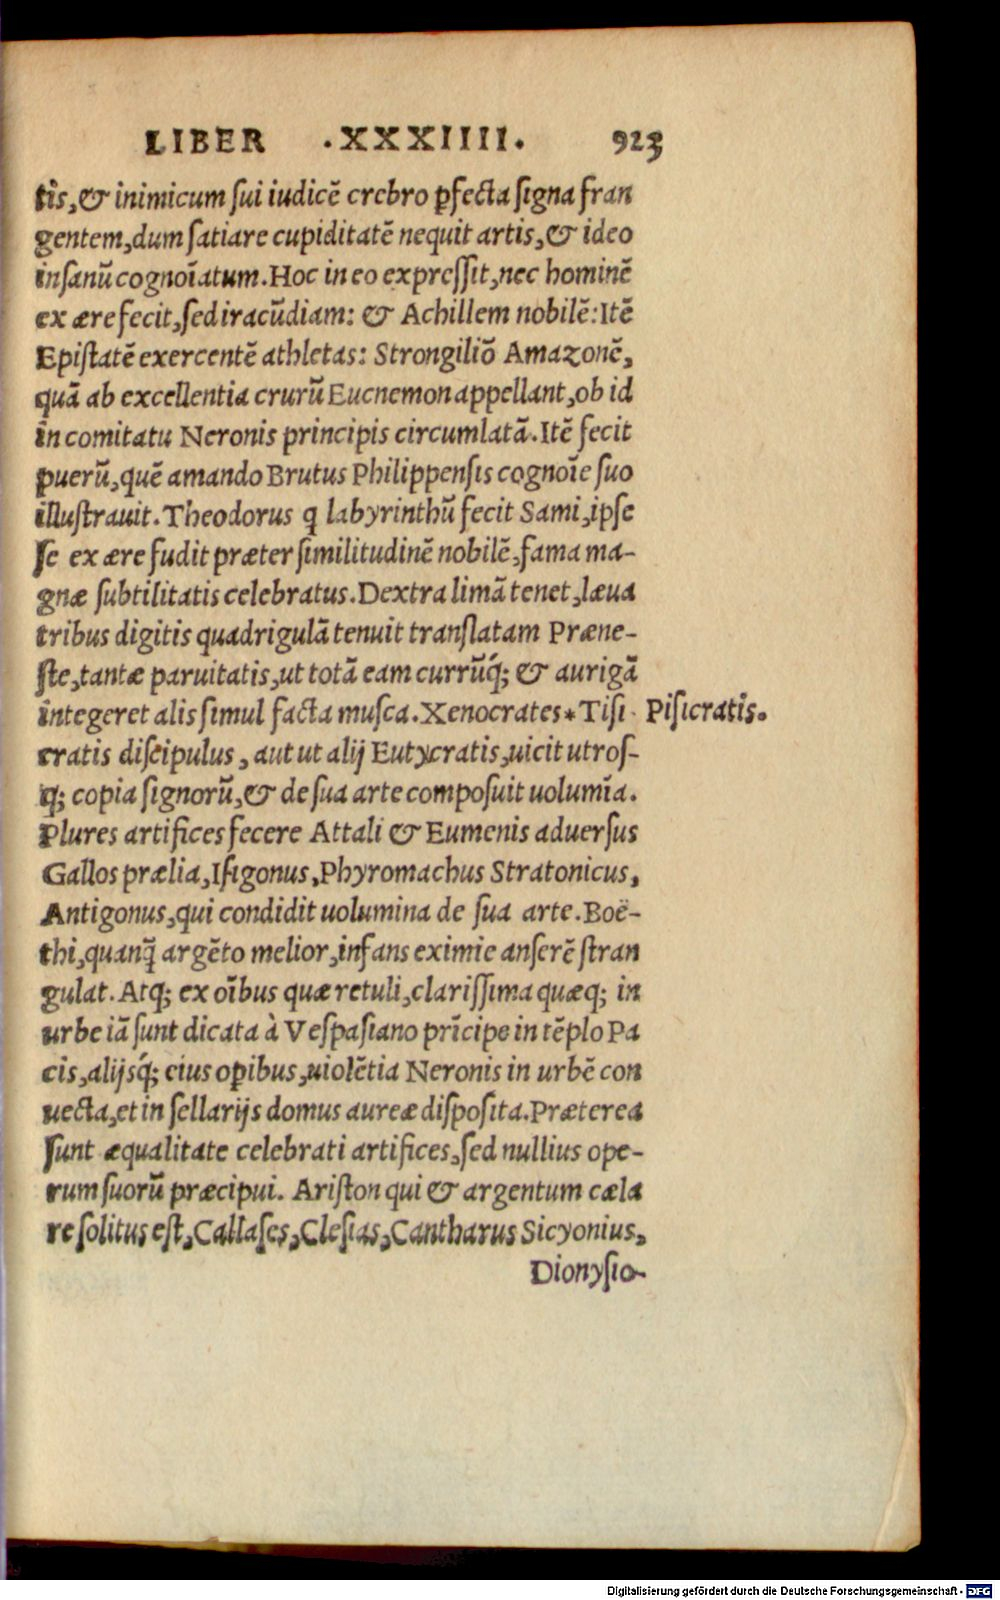 LIBER .XXXIIII. 923
tis, & inimicum ſui iudicē crebro ꝑfecta ſigna fran
gentem, dum ſatiare cupiditatē nequit artis, & ideo
inſanū cognoīatum. Hoc in eo expreſſit, nec hominē
ex ære fecit, ſed iracūdiam: & Achillem nobilē: Itē
Epiſtatē exercentē athletas: Strongiliō Amazonē,
quā ab excellentia crurū Eucnemon appellant, ob id
in comitatu Neronis principis circumlatā. Itē fecit
puerū, quē amando Brutus Philippenſis cognoīe ſuo
illuſtrauit. Theodorus q labyrinthū fecit Sami, ipſe
ſe ex ære fudit præter ſimilitudinē nobilē, fama ma-
gnæ ſubtilitatis celebratus. Dextra limā tenet, læua
tribus digitis quadrigulā tenuit tranſlatam Præne-
ſte, tantæ paruitatis, ut totā eam currūq́; & aurigā
integeret alis ſimul facta muſca. Xenocrates * Tiſi Piſicratis.
cratis diſcipulus, aut ut alij Eutycratis, uicit utroſ-
q; copia ſignorū, & de ſua arte compoſuit uolumīa.
Plures artifices fecere Attali & Eumenis aduerſus
Gallos prælia, Iſigonus, Phyromachus Stratonicus,
Antigonus, qui condidit uolumina de ſua arte. Boë-
thi, quanq̄ argēto melior, infans eximie anſerē ſtran
gulat. Atq; ex oībus quæ retuli, clariſſima quæq; in
urbe iā ſunt dicata à Veſpaſiano prīcipe in tēplo Pa
cis, alijsq́; eius oꝑibus, uiolētia Neronis in urbē con
uecta, et in ſellarijs domus aureæ diſpoſita. Præterea
ſunt æqualitate celebrati artifices, ſed nullius ope-
rum ſuorū præcipui. Ariſton qui & argentum cæla
re ſolitus eſt, Callaſes, Cleſias, Cantharus Sicyonius,
Dionyſio-
Digitalisierung gefördert durch die Deutsche Forschungsgemeinschaft - DFG